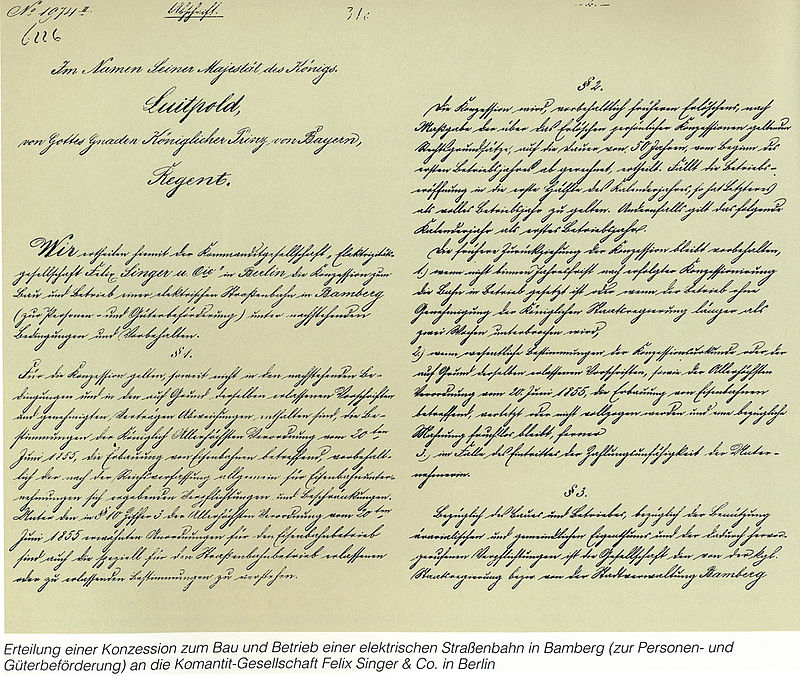 No 1974 II.
Abschrift.
31.
6226
Im Namen Seiner Majestät des Königs.
Luitpold,
von Gottes Gnaden Königlicher Prinz von Bayern,
Regent.
Wir ertheilen hiemit der Kommanditgesellschaft „Elektrizitäts-
gesellschaft Felix Singer u. Cie" in Berlin die Konzession zum
Bau und Betrieb einer elektrischen Straßenbahn in Bamberg
(zur Personen- und Güterbeförderung) unter nachstehenden
Bedingungen und Vorbehalten.
§ 1.
Für die Konzession gelten, soweit nicht in den nachstehenden Be-
dingungen und in den auf Grund derselben erlassenen Vorschriften
und genehmigten Verträgen Abweichungen enthalten sind, die Be-
stimmungen der Königlich Allerhöchsten Verordnung vom 20ten
Juni 1855, die Erbauung von Eisenbahnen betreffend, vorbehalt-
lich der nach der Reichsverfassung allgemein für Eisenbahnunter-
nehmungen sich ergebenden Verpflichtungen und Beschränkungen.
Unter den in § 10 Ziffer 3 der Allerhöchsten Verordnung vom 20ten
Juni 1855 erwähnten Anordnungen für den Eisenbahnbetrieb
sind auch die speziell für den Straßenbahnbetrieb erlassenen
oder zu erlassenden Bestimmungen zu verstehen.
§ 2.
Die Konzession wird, vorbehaltlich früheren Erlöschens, nach
Maßgabe der über das Erlöschen persönlicher Konzessionen geltenden
Rechtsgrundsätze, auf die Dauer von 50 Jahren, vom Beginn des
ersten Betriebsjahres ab gerechnet, ertheilt. Fällt die Betriebs-
eröffnung in die erste Hälfte des Kalenderjahres, so hat letzteres
als volles Betriebsjahr zu gelten. Andernfalls gilt das folgende
Kalenderjahr als erstes Betriebsjahr.
Die frühere Zurückziehung der Konzession bleibt vorbehalten,
1.) wenn nicht binnen Jahresfrist nach erfolgter Konzessionirung
die Bahn in Betrieb gesetzt ist oder wenn der Betrieb ohne
Genehmigung der Königlichen Staatsregierung länger als
zwei Wochen unterbrochen wird,
2.) wenn wesentliche Bestimmungen der Konzessionsurkunde oder der
auf Grund derselben erlassenen Vorschriften, sowie der Allerhöchsten
Verordnung vom 20. Juni 1855, die Erbauung von Eisenbahnen
betreffend, verletzt oder nicht vollzogen werden und eine bezügliche
Mahnung fruchtlos bleibt, ferner
3., im Falle des Eintrittes der Zahlungsunfähigkeit der Unter-
nehmerin.
§ 3.
Bezüglich des Baues und Betriebes, bezüglich der Benützung
ärarialischen und gemeindlichen Eigenthums und der dadurch hervor-
gerufenen Verpflichtungen ist die Gesellschaft den von der kgl.
Staatsregierung bezw. von der Stadtverwaltung Bamberg
Erteilung einer Konzession zum Bau und Betrieb einer elektrischen Straßenbahn in Bamberg (zur Personen- und
Güterbeförderung) an die Komantit-Gesellschaft Felix Singer & Co. in Berlin